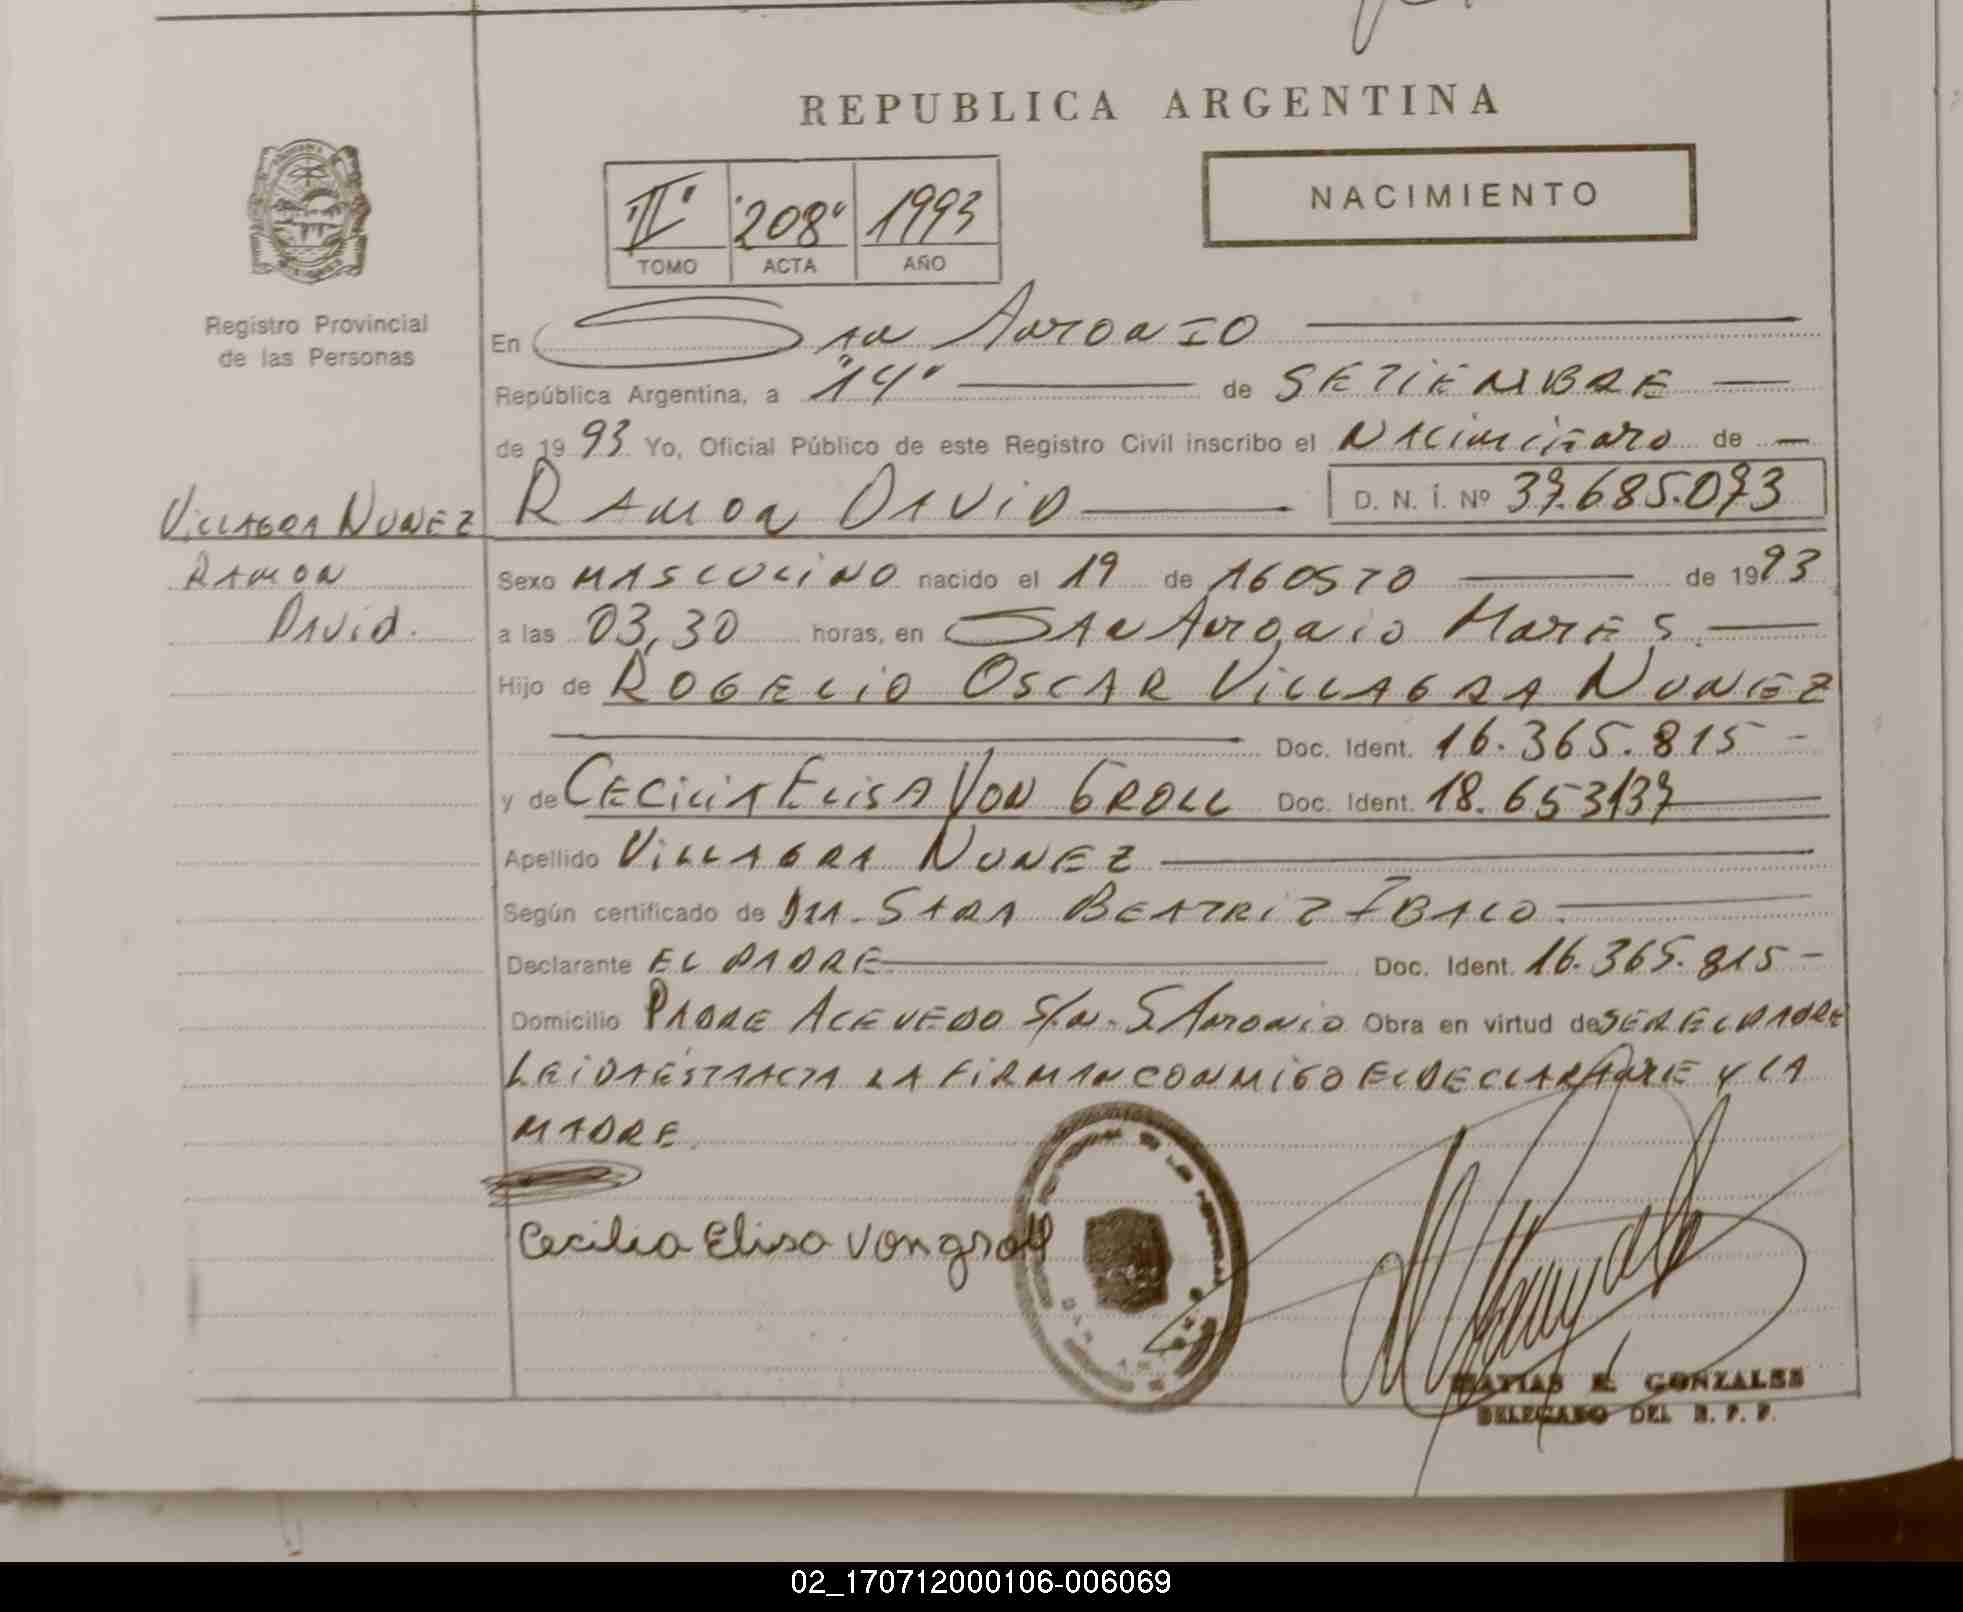 REPUBLICA ARGENTINA
NACIMIENTO
"II" "208" 1993
TOMO ACTA AÑO
Registro Provincial
de las Personas
En San Antonio
República Argentina, a "14" de SETIEMBRE
de 1993 Yo, Oficial Público de este Registro Civil inscribo el Nacimiento de
RAMON DAVID D. N. I. Nº 37.685.073
VILLAGRA NUNEZ
RAMON
DAVID.
Sexo MASCULINO nacido el 19 de AGOSTO de 1993
a las 03,30 horas, en SAN Antonio Mnes.
Hijo de ROGELIO OSCAR VILLAGRA NUNEZ
Doc. Ident. 16.365.815 -
y de CECILIA ELISA VON GROLL Doc. Ident. 18.653137
Apellido VILLAGRA NUNEZ
Según certificado de SARA BEATRIZ
Declarante EL PADRE Doc. Ident. 16.365.815 -
Domicilio PADRE ACEVEDO S/N. S. Antonio Obra en virtud de SER EL PADRE
LEIDA ESTA ACTA LA FIRMAN CONMIGO EL DECLARANTE Y LA
MADRE.
Cecilia Elisa Vongroll
MATIAS R. GONZALES
DELEGADO DEL R. P. P.
02_170712000106-006069